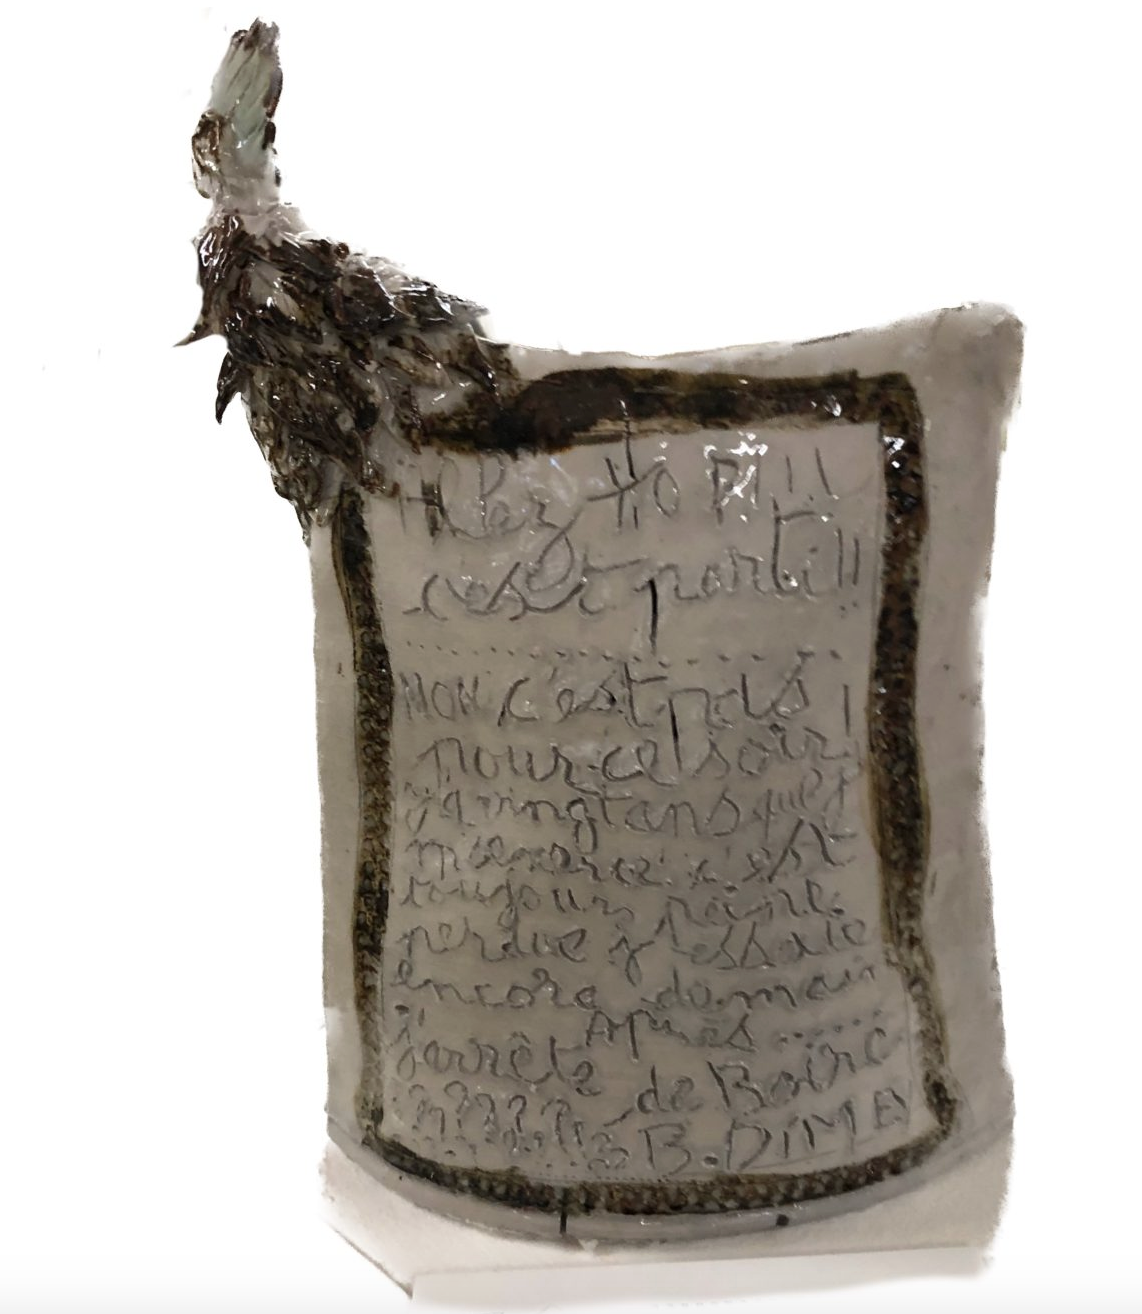 Allez HOP!!!
c'est parti!!
NON c'est pas
pour ce soir!
y'a vingt ans que j'
m'exerce c'est
toujours peine
perdue j'essaie
encore demain
Après......
j'arrête de Boire
?????? B. DIMEY